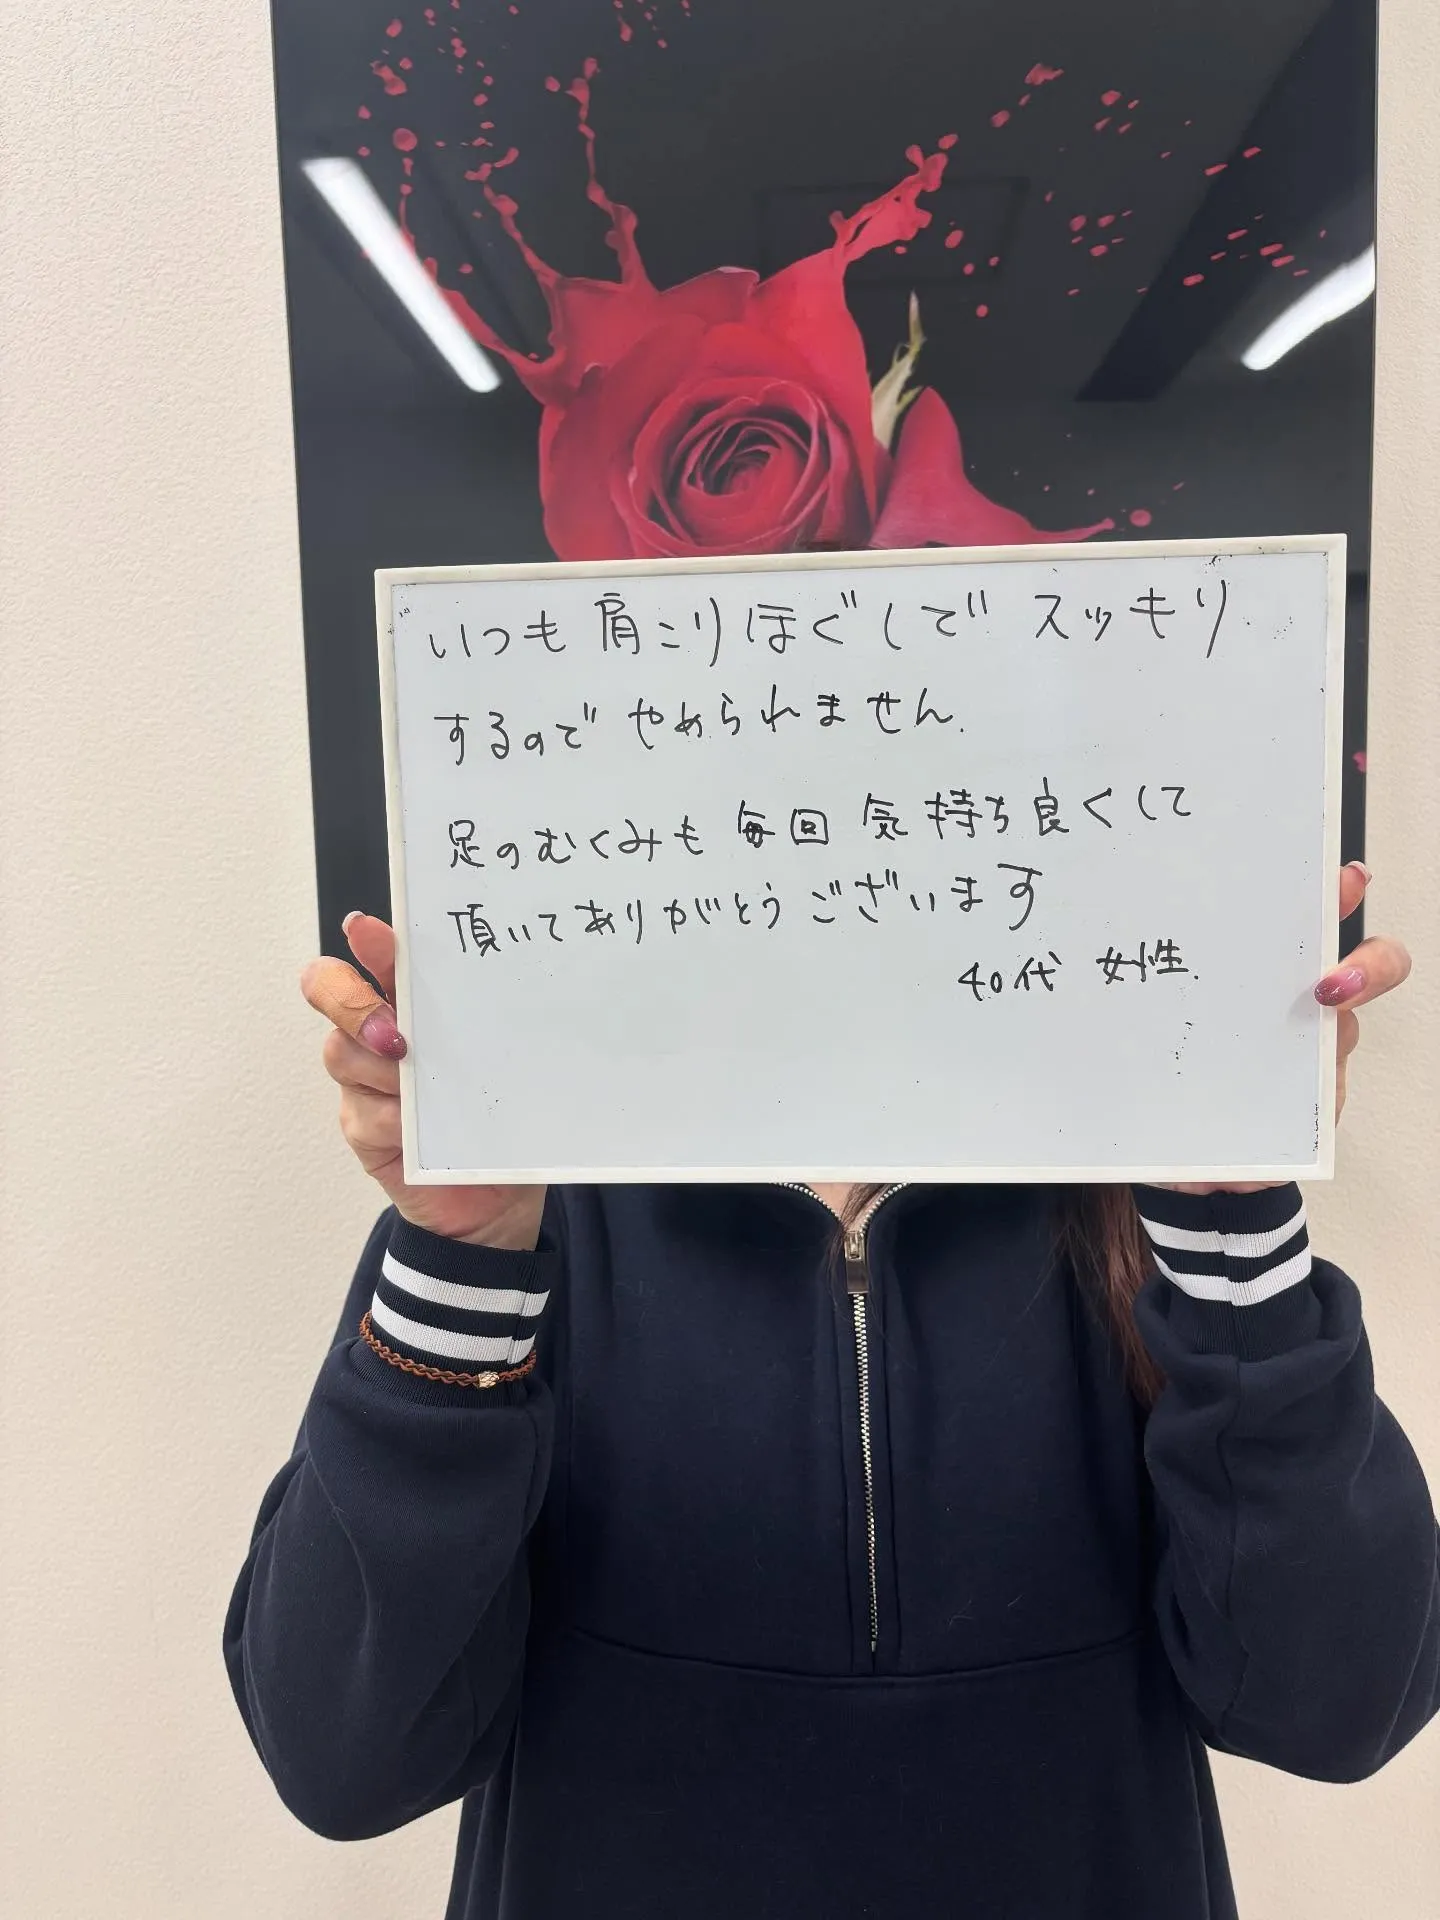 いつも肩こりほぐしでスッキリ
するのでやめられません.
足のむくみも毎回気持ち良くして
頂いてありがとうございます
40代 女性.